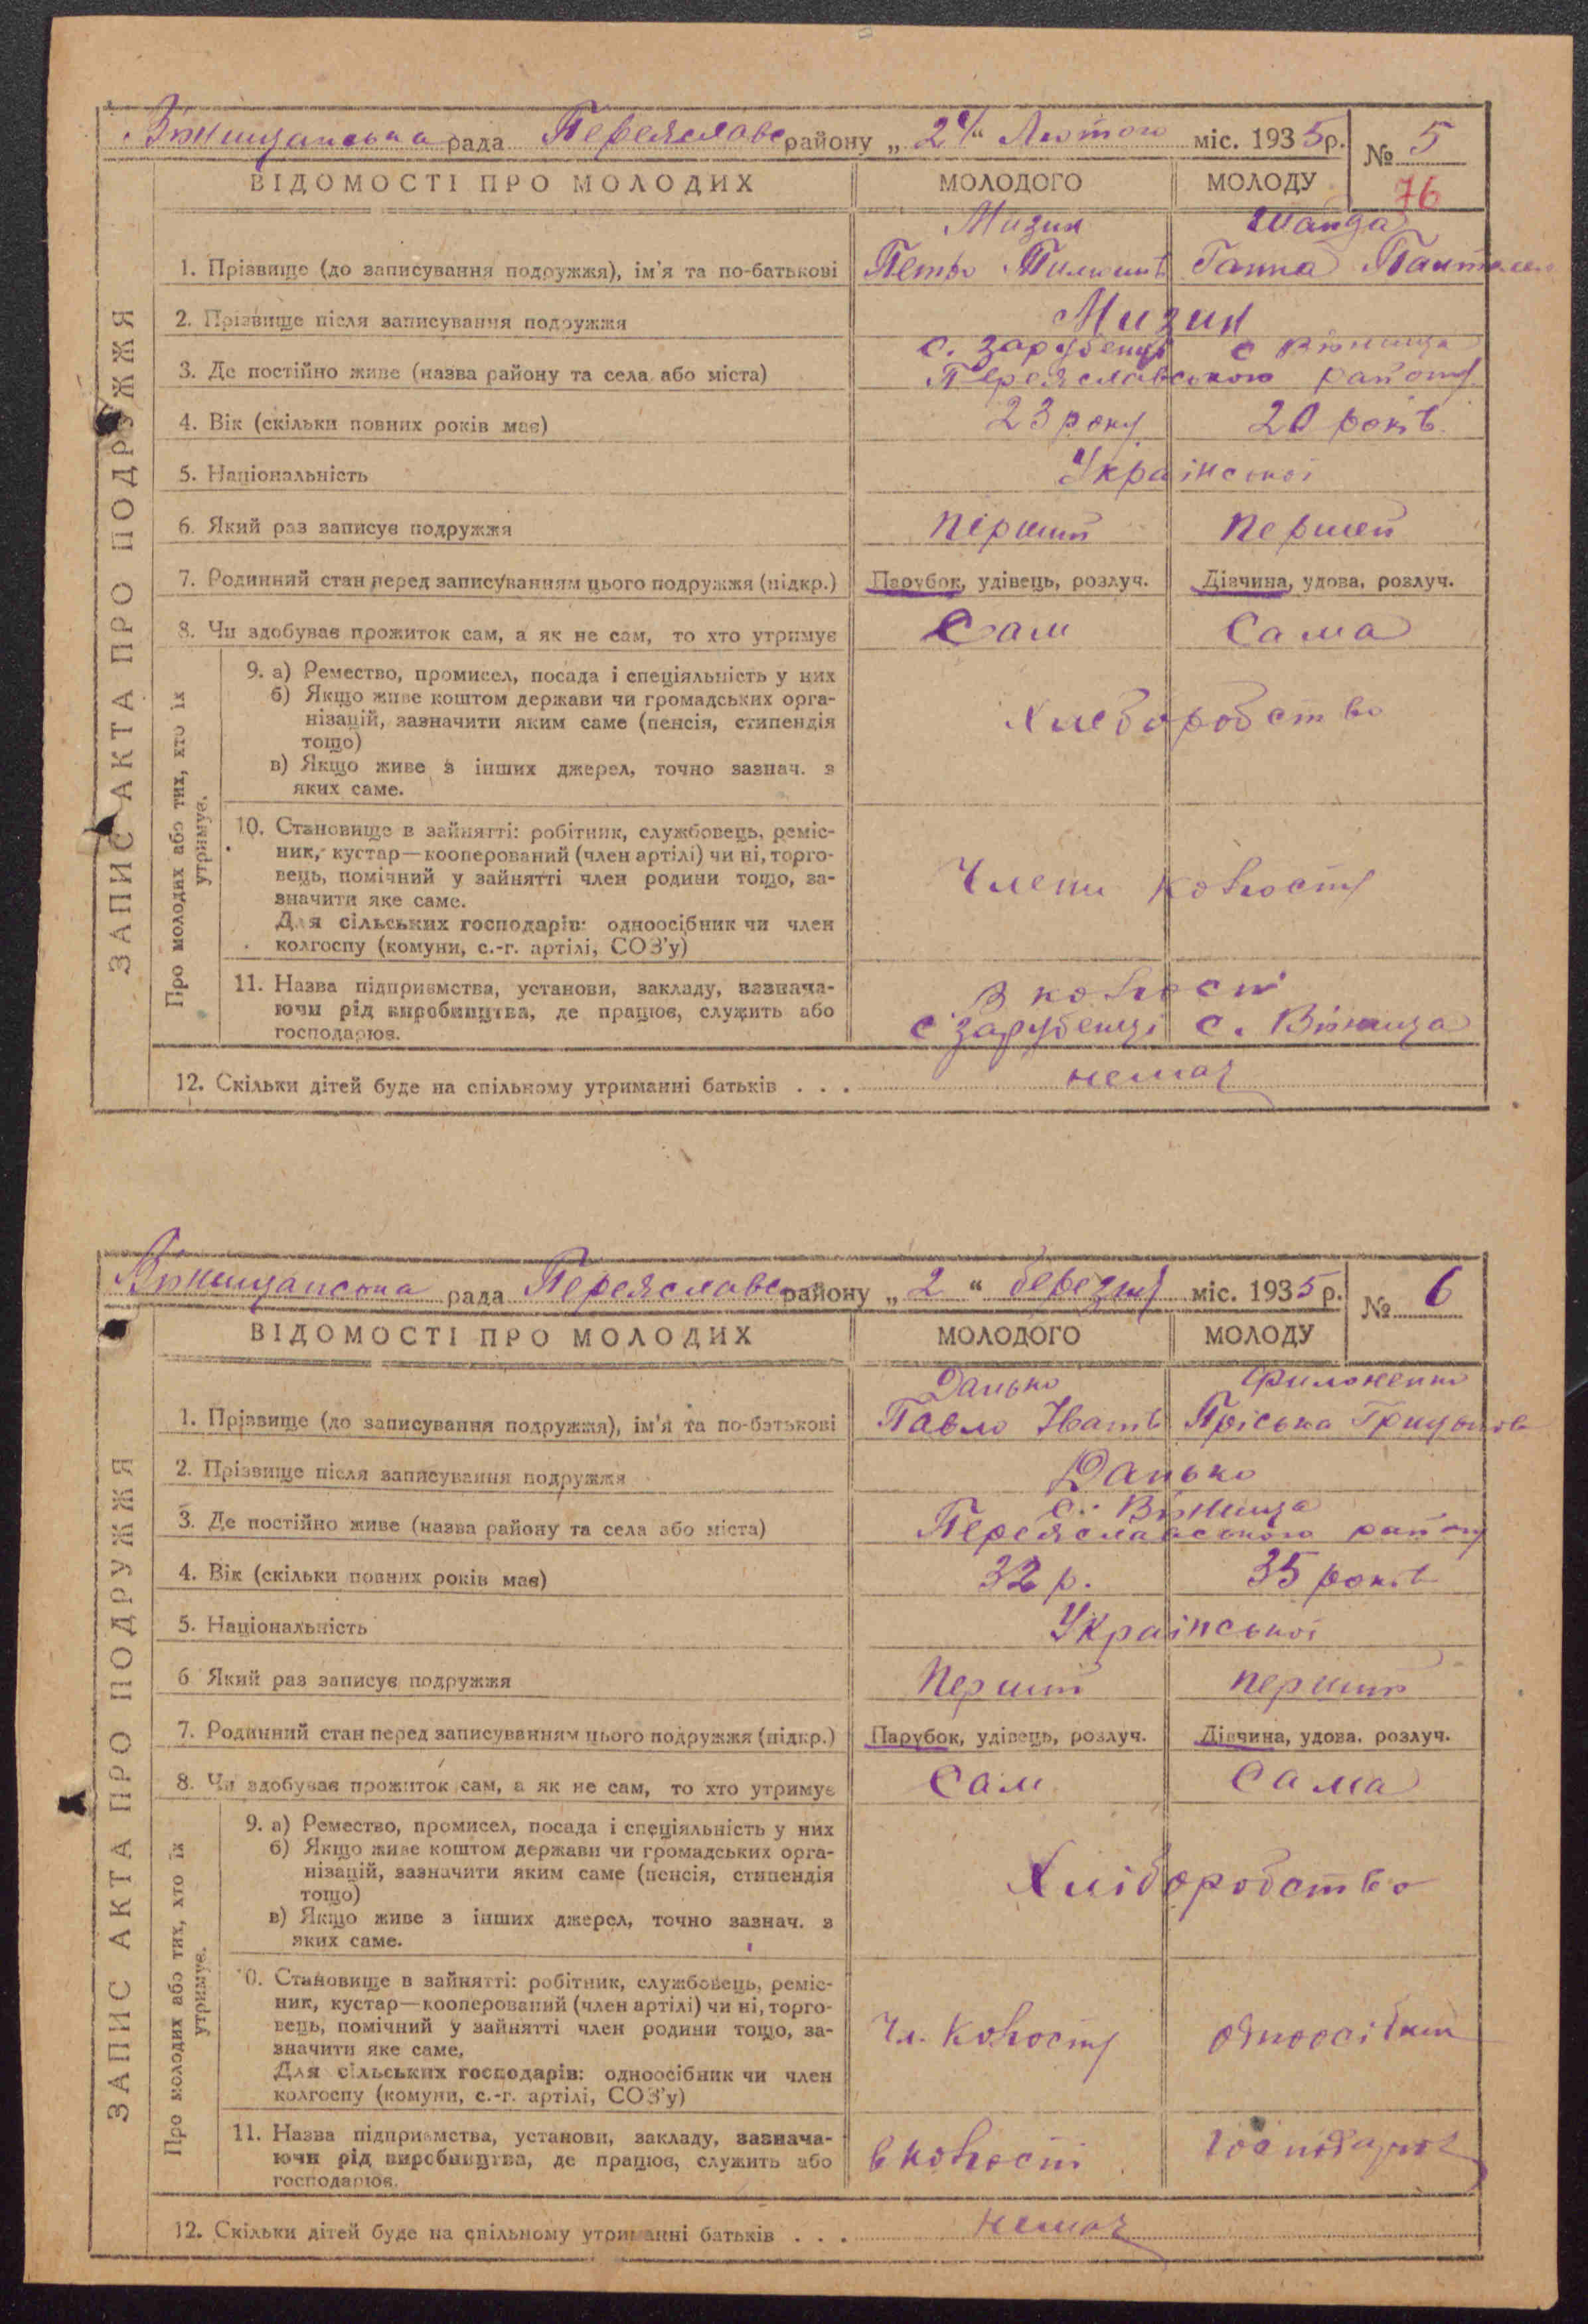 Вінницанська рада Переяславс району „ 24 “ Лютого міс. 1935 р. № 5
76
ВІДОМОСТІ ПРО МОЛОДИХ МОЛОДОГО МОЛОДУ
ЗАПИС АКТА ПРО ПОДРУЖЖЯ
Мизин Шайда
1. Прізвище (до записування подружжя), ім'я та по-батькові Петро Ганна
2. Прізвище після записування подружжя Мизин
с. Зарубенці с Вінинца
3. Де постійно живе (назва району та села або міста) Переяславського району
4. Вік (скільки повних років має) 23 року 20 років
5. Національність Української
6. Який раз записує подружжя перший перший
7. Родинний стан перед записуванням цього подружжя (підкр.) Парубок, удівець, розлуч. Дівчина, удова, розлуч.
8. Чи здобував прожиток сам, а як не сам, то хто утримує Сам Сама
Про молодих або тих, хто їх утримує.
9. а) Ремество, промисел, посада і спеціяльність у них
б) Якщо живе коштом держави чи громадських орга-
нізацій, зазначити яким саме (пенсія, стипендія
тощо) Хлеборобство
в) Якщо живе з інших джерел, точно зазнач. з
яких саме.
10. Становище в зайнятті: робітник, службовець, реміс-
ник, кустар—кооперований (член артілі) чи ні, торго-
вець, помічний у зайнятті член родини тощо, за-
значити яке саме. Члени колгоспу
Для сільських господарів: одноосібник чи член
колгоспу (комуни, с.-г. артілі, СОЗ'у)
11. Назва підприємства, установи, закладу, зазнача-
ючи рід виробництва, де працює, служить або в колгоспі
господарює. с Зарубенці с. Вінинца
12. Скільки дітей буде на спільному утриманні батьків . . . немає
Вінницанська рада Переяславс району „ 2 “ березня міс. 1935 р. № 6
ВІДОМОСТІ ПРО МОЛОДИХ МОЛОДОГО МОЛОДУ
ЗАПИС АКТА ПРО ПОДРУЖЖЯ
Данько Филоненко
1. Прізвище (до записування подружжя), ім'я та по-батькові Павло Іванів Пріська Грицьков
2. Прізвище після записування подружжя Данько
с. Вінинца
3. Де постійно живе (назва району та села або міста) Переяславського району
4. Вік (скільки повних років має) 32 р. 35 років
5. Національність Української
6 Який раз записує подружжя перший перший
7. Родинний стан перед записуванням цього подружжя (підкр.) Парубок, удівець, розлуч. Дівчина, удова, розлуч.
8. Чи здобував прожиток сам, а як не сам, то хто утримує Сам Сама
Про молодих або тих, хто їх утримує.
9. а) Ремество, промисел, посада і спеціяльність у них
б) Якщо живе коштом держави чи громадських орга-
нізацій, зазначити яким саме (пенсія, стипендія
тощо) Хліборобство
в) Якщо живе з інших джерел, точно зазнач. з
яких саме.
10. Становище в зайнятті: робітник, службовець, реміс-
ник, кустар—кооперований (член артілі) чи ні, торго-
вець, помічний у зайнятті член родини тощо, за-
значити яке саме, Чл. колгоспу одноосібник
Для сільських господарів: одноосібник чи член
колгоспу (комуни, с.-г. артілі, СОЗ'у)
11. Назва підприємства, установи, закладу, зазнача-
ючи рід виробництва, де працює, служить або в колгоспі господарює
господарює.
12. Скільки дітей буде на спільному утриманні батьків . . . немає